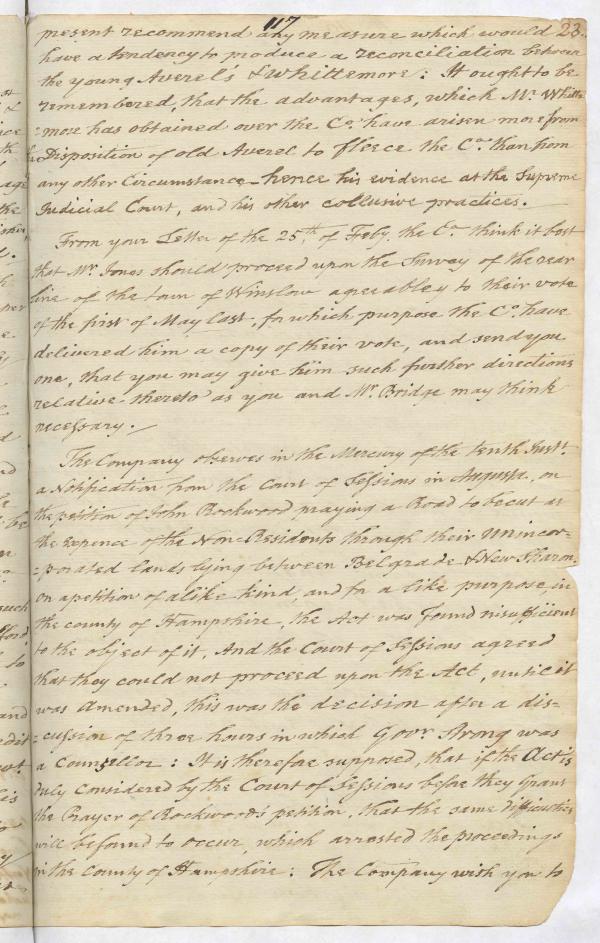 117
present recommend any measure which would 23.
have a tendency to produce a reconciliation between
the young Averel's & Whittemore: It ought to be
remembered, that the advantages, which Mr. Whitte
=more has obtained over the Co. have arisen more from
Disposition of old Averel to fleece the Co. than from
any other Circumstance – hence his evidence at the Supreme
Judicial Court, and his other collusive practices. –
From your Letter of the 25th. of Feby. the Co. think it best
that Mr. Jones should proceed upon the Survey of the rear
line of the town of Winslow agreabley to their vote
of the first of May last, for which purpose the Co. have
delivered him a copy of their vote, and send you
one, that you may give him such further directions
relative thereto as you and Mr. Bridge may think
necessary. –
The Company observes in the Mercury of the tenth Inst.
a Notification from the Court of Sessions in Augusta, on
the petition of John Rockwood praying a Road to be cut at
the Expence of the Non-Residents through their Unincor-
-porated lands lying between Belgrade & New Sharon.
on a petition of alike kind, and for a like purpose, in
the county of Hampshire, the Act was found insufficient
to the object of it, And the Court of Sessions agreed
that they could not proceed upon the Act, until it
was amended, this was the decision after a dis-
-cussion of three hours in which Govr. Strong was
a Counsellor: It is therefore supposed, that if the Act is
duly considered by the Court of Sessions before they Grant
the Prayer of Rockwood's petition, that the same difficulties
will be found to occur, which arrested the proceedings
in the County of Hampshire: The Company wish you to